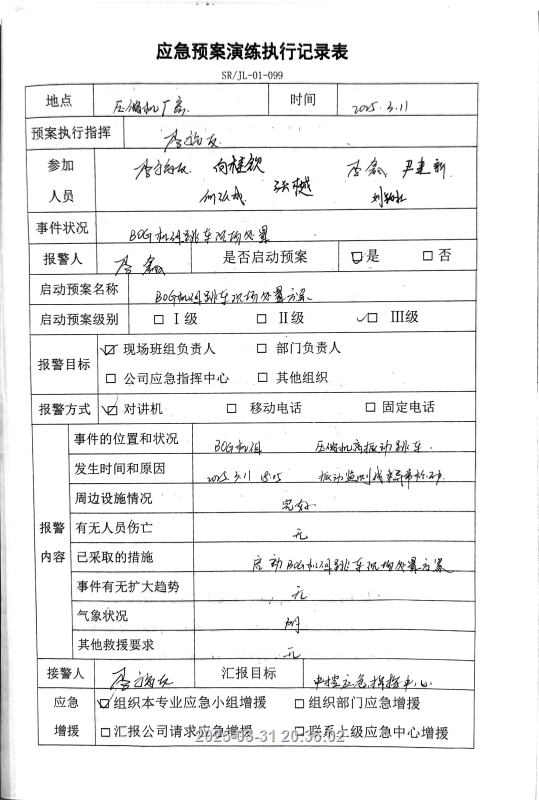 应急预案演练执行记录表
SR/JL-01-099
地点 压缩机厂房 时间 2025.3.11
预案执行指挥
参加人员 向继钦 李鑫 尹建新
张樾
事件状况 BOG机组跳车现场处置
报警人 李鑫 是否启动预案 ☑是 □否
启动预案名称 BOG机组跳车现场处置方案
启动预案级别 □Ⅰ级 □Ⅱ级 ✓□Ⅲ级
报警目标 ☑现场班组负责人 □部门负责人
□公司应急指挥中心 □其他组织
报警方式 ☑对讲机 □移动电话 □固定电话
报警内容 事件的位置和状况 BOG机组 压缩机高振动跳车
发生时间和原因 2025.3.11 振动监测线
周边设施情况 完好
有无人员伤亡 无
已采取的措施 启动BOG机组跳车现场处置方案
事件有无扩大趋势 无
气象状况 晴
其他救援要求 无
接警人 汇报目标 中控应急指挥中心
应急增援 ☑组织本专业应急小组增援 □组织部门应急增援
□汇报公司请求应急增援 □联系上级应急中心增援
2025-03-31 20:36:02